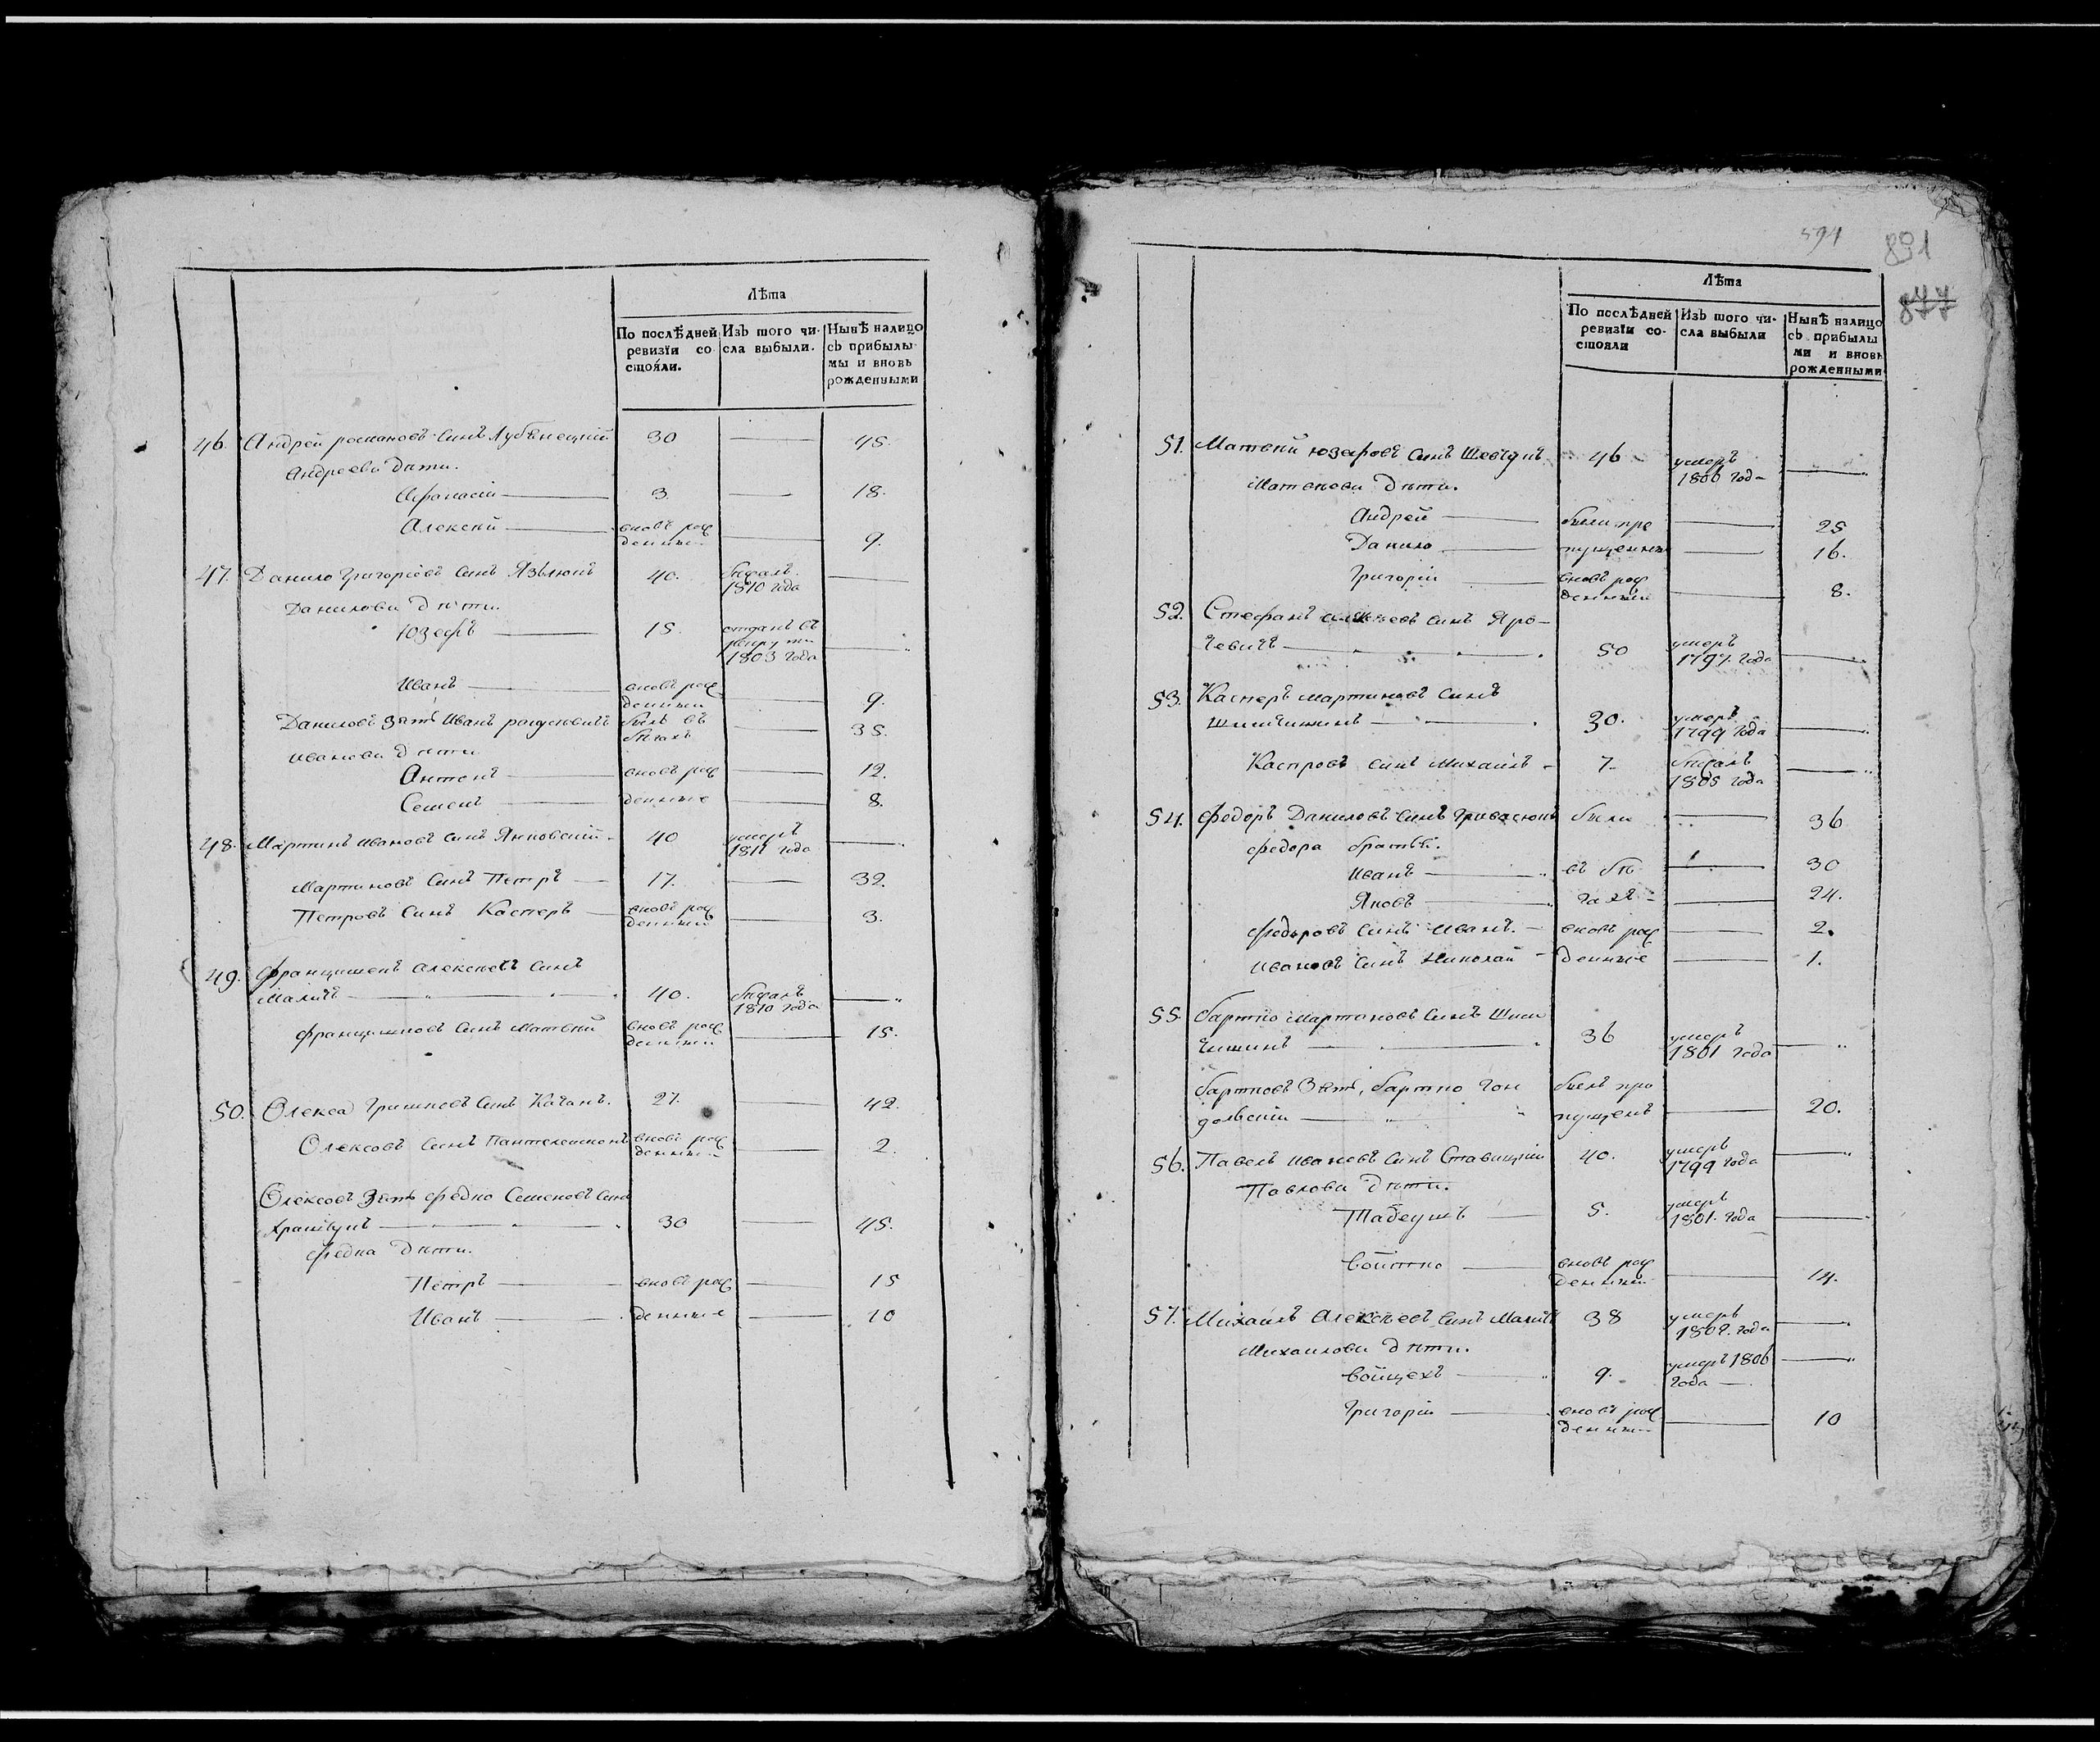 Лѣта
По послѣдней ревизїи состояли.
Изъ того числа выбыли.
Нынѣ налицо съ прибылымы и вновь рожденными
46. Андрей романовъ синъ Лубѣнецкий 30 — 45.
Андреевы дѣти.
Афанасій — 3 — 18.
Алексѣй — вновь рож денный — 9.
47. Данило Григорíевъ синъ 40. бѣжалъ 1810 года —
Данилови дѣти.
Юзефъ — 15. отданъ въ рекруты 1803 года —
Иванъ — вновь рож денный — 9.
Даниловъ зять Иванъ билъ въ бѣгахъ — 35.
Иванови дѣти
Антонъ — вновь рож — 12.
Семенъ — денные — 8.
48. Мартинъ Ивановъ синъ Янковскій 40 умеръ 1811 года —
Мартиновъ синъ Петръ — 17. — 32.
Петровъ синъ Касперъ — вновь рож денный — 3.
49. Францишекъ Алексѣевъ синъ
Маличъ — 40. бѣжалъ 1810 года —
Францишковъ синъ Матвѣй вновь рож денный — 15.
50. Олекса Гришковъ синъ Качанъ. 27. — 42.
Олексовъ синъ Пантелеймонъ вновь рож денный — 2.
Олексовъ зять Федко Семеновъ синъ
— 30 — 45.
Федка дѣти.
Петръ — вновь рож — 15
Иванъ — денные — 10
594
891
877
Лѣта
По послѣдней ревизїи состояли
Изъ того числа выбыли
Нынѣ налицо съ прибылыми и вновь рожденными
51. Матвѣй Юзефовъ синъ Шевчукъ 46 умеръ 1806 года —
Матвѣеви дѣти.
Андрей — били про — 25
Данило — пущенны — 16.
Григорій — вновь рож денный — 8.
52. Стефанъ синъ Яро-
чевичъ — 50 умеръ 1797. года —
53. Касперъ Мартиновъ синъ
— 30. умеръ 1799 года —
Каспровъ синъ Михайлъ - 7. бѣжалъ 1805 года —
54. Федоръ Даниловъ синъ били — 36
Федора братья.
Иванъ — въ бѣ — 30
Яковъ — гахъ — 24.
Федоровъ синъ Иванъ. - вновь рож — 2.
Ивановъ синъ Николай - денные — 1.
55. Бартко Мартиновъ синъ
— 36 умеръ 1801 года —
Бартковъ зять, Бартко Гон билъ про
дольскій — пущенъ — 20.
56. Павелъ Ивановъ синъ Ставицкій 40. умеръ 1799 года —
Павлови дѣти.
Тадеушъ — 5. умеръ 1801. года —
Войтко — вновь рож денный — 14.
57. Михайлъ Алексѣевъ синъ Маличъ 38 умеръ года —
Михайлови дѣти.
Войцехъ — 9. умеръ 1806 года —
Григорій — вновь рож денный — 10